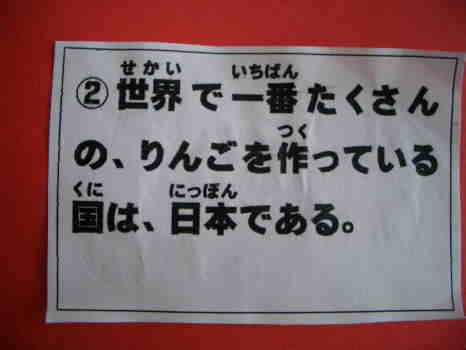 せかい いちばん
②世界で一番たくさん
つく
の、りんごを作っている
くに にっぽん
国は、日本である。